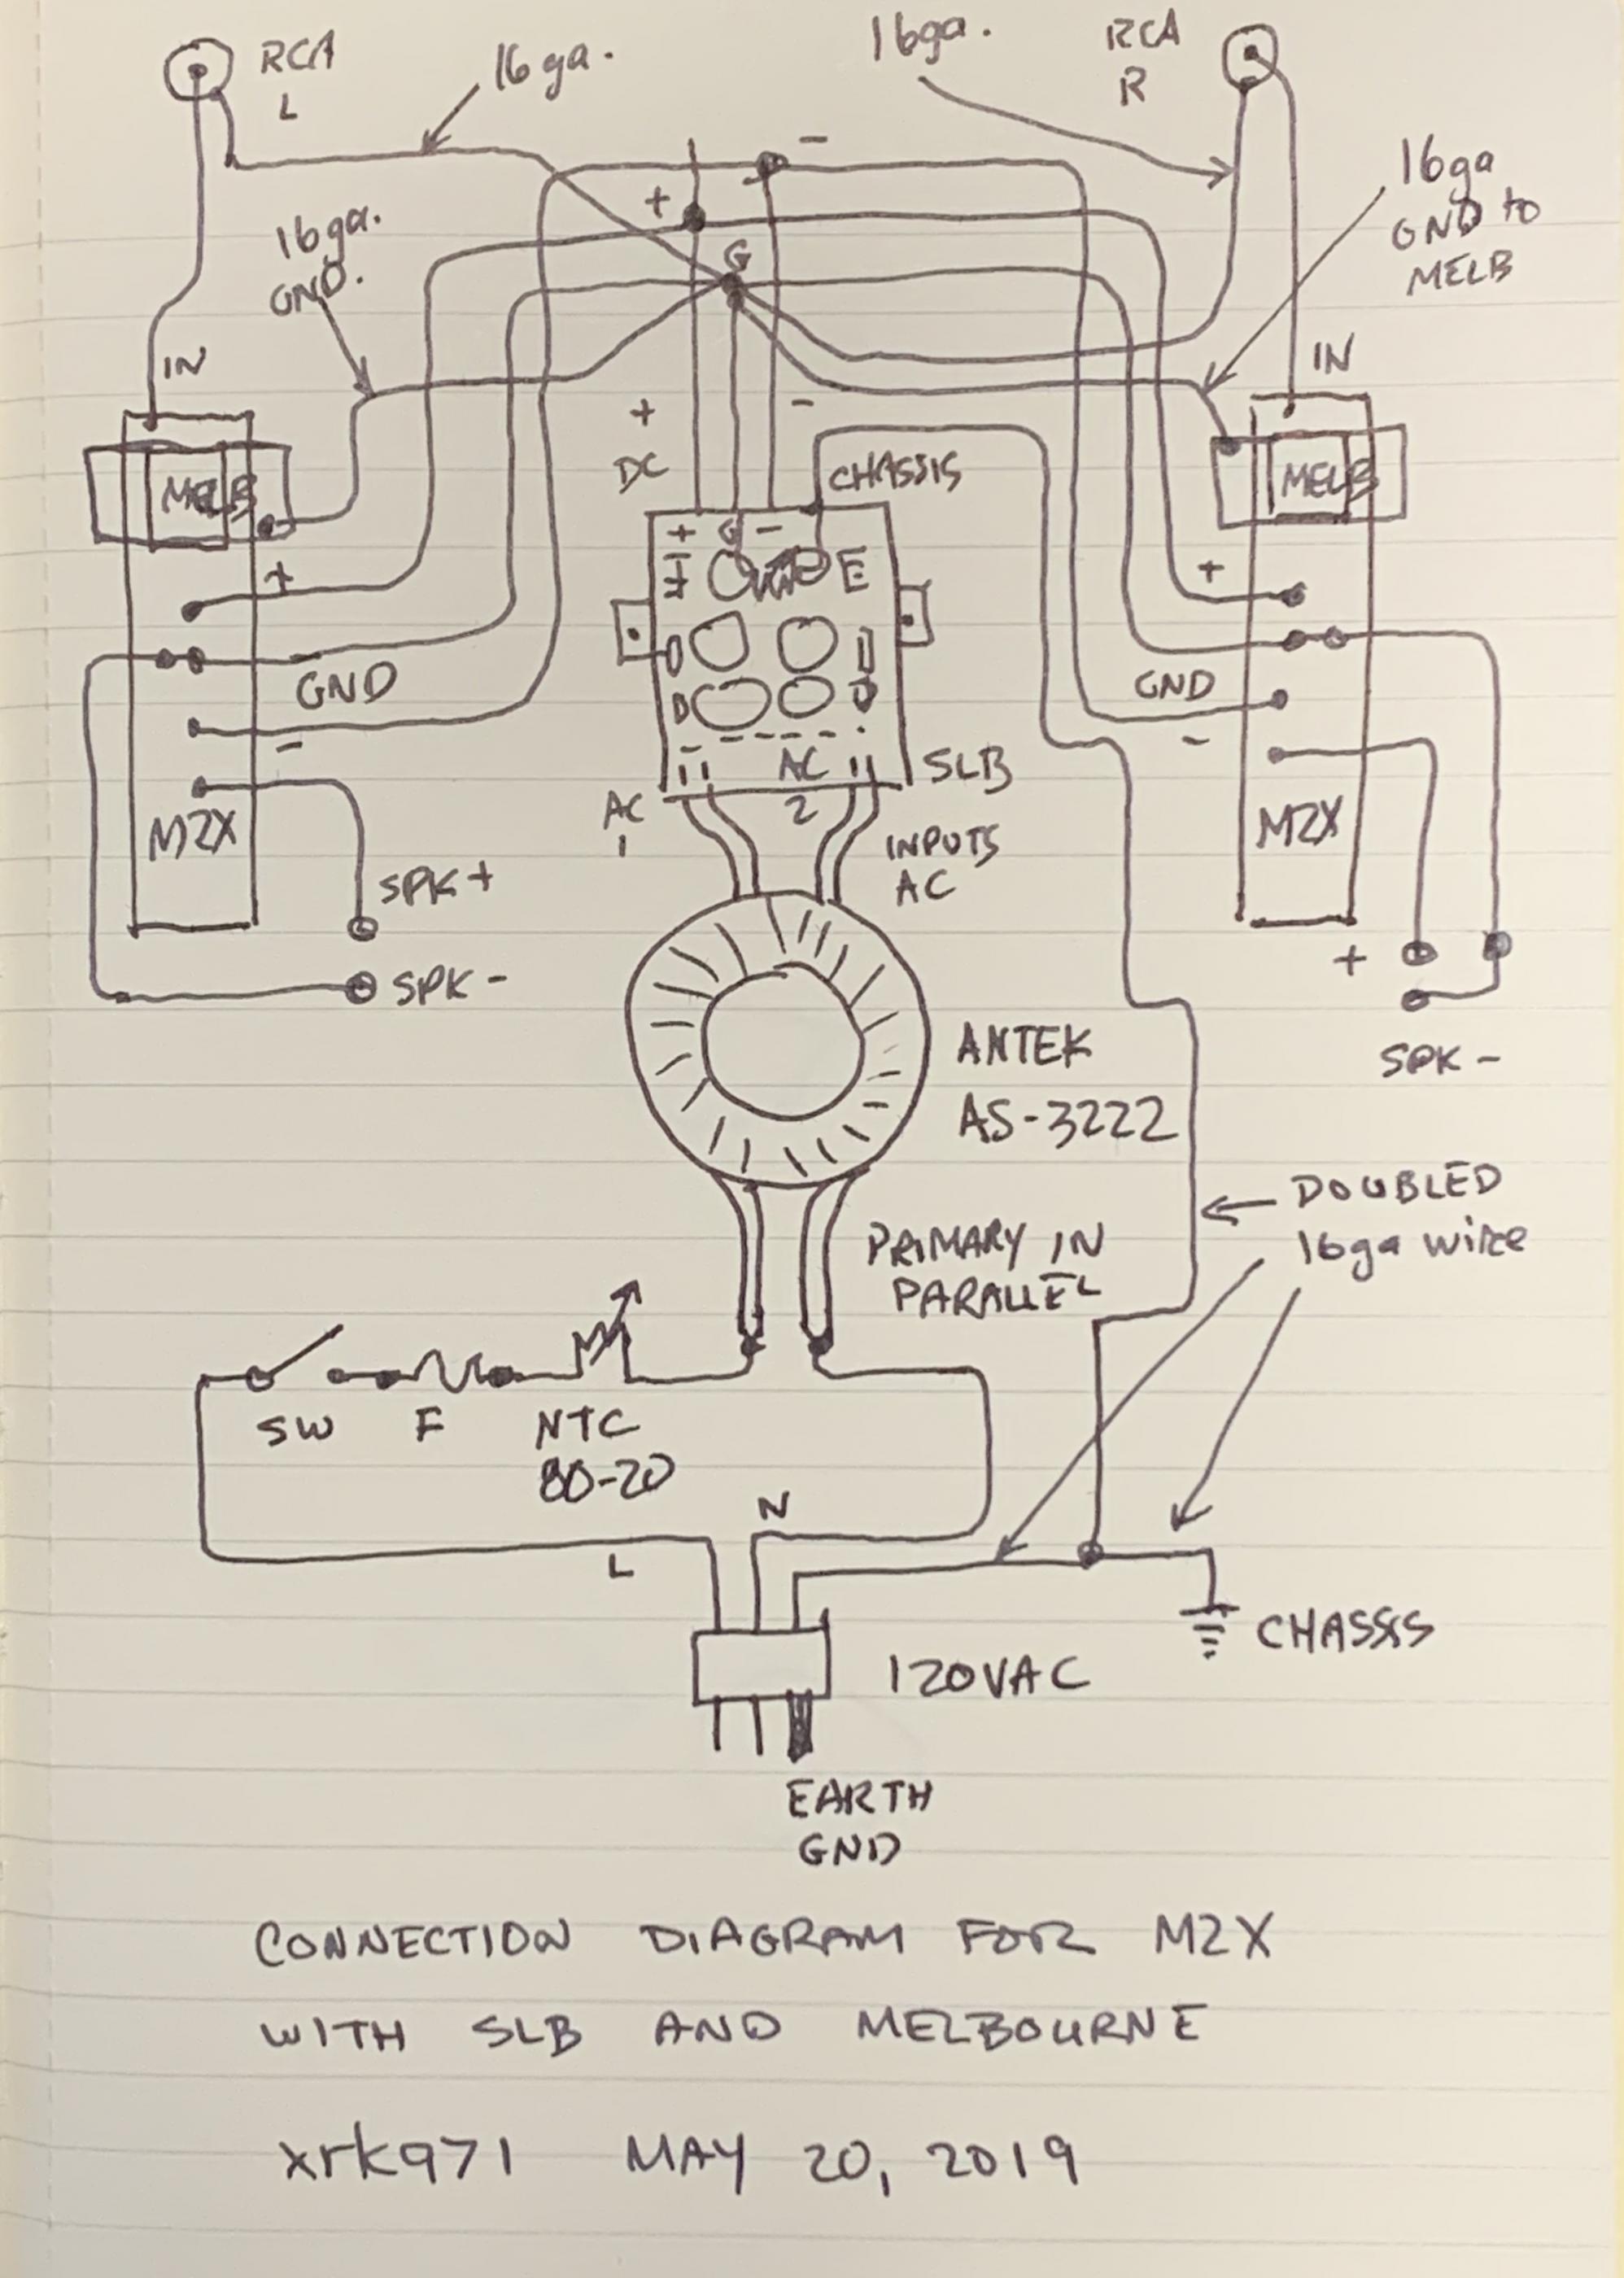 RCA
L
16 ga.
16ga.
RCA
R
16ga
GND to
MELB
-
+
G
16ga.
GND.
IN
IN
+
-
DC
CHASSIS
MELB
MELB
+ G -
E
+
+
GND
GND
-
-
AC
SLB
AC
1
2
INPUTS
AC
M2X
M2X
SPK+
SPK-
+
SPK-
ANTEK
AS-3222
DOUBLED
16ga wire
PRIMARY IN
PARALLEL
SW
F
NTC
80-20
N
L
CHASSIS
120VAC
EARTH
GND
CONNECTION DIAGRAM FOR M2X
WITH SLB AND MELBOURNE
xrk971 MAY 20, 2019